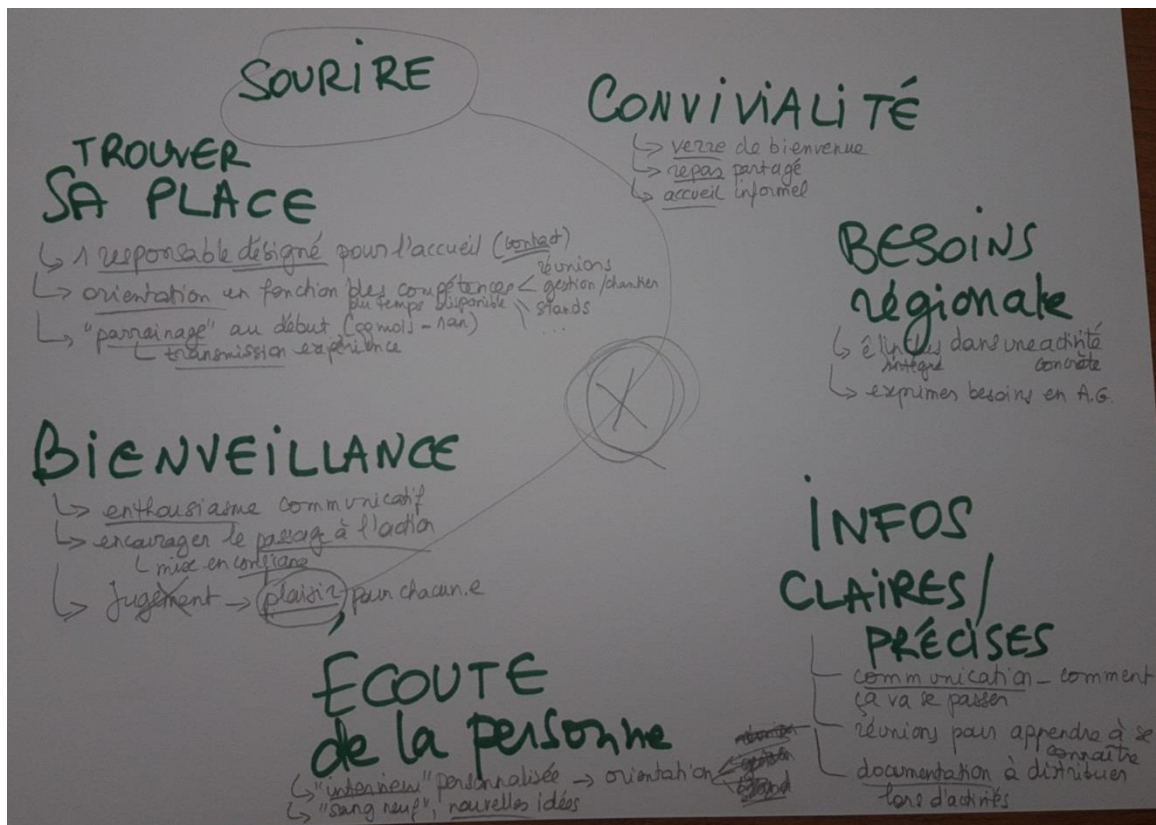 SOURIRE
CONVIVIALITÉ
↳ verre de bienvenue
↳ repas partagé
↳ accueil informel
TROUVER
SA PLACE
↳ 1 responsable désigné pour l'accueil (contact)
↳ orientation en fonction des compétences < réunions
gestion/chantier
du temps disponible \ stands
...
↳ "parrainage" au début (qq mois - 1 an)
↳ transmission expérience
BESOINS
régionale
↳ dans une activité
intégré concrète
↳ exprimes besoins en A.G.
BIENVEILLANCE
↳ enthousiasme communicatif
↳ encourager le passage à l'action
↳ mise en confiance
↳ jugement → plaisir pour chacun.e
INFOS
CLAIRES/
PRÉCISES
communication - comment
ça va se passer
réunions pour apprendre à se
connaître
documentation à distribuer
lors d'activités
ÉCOUTE
de la personne
↳ "interview" personnalisée → orientation
↳ "sang neuf", nouvelles idées